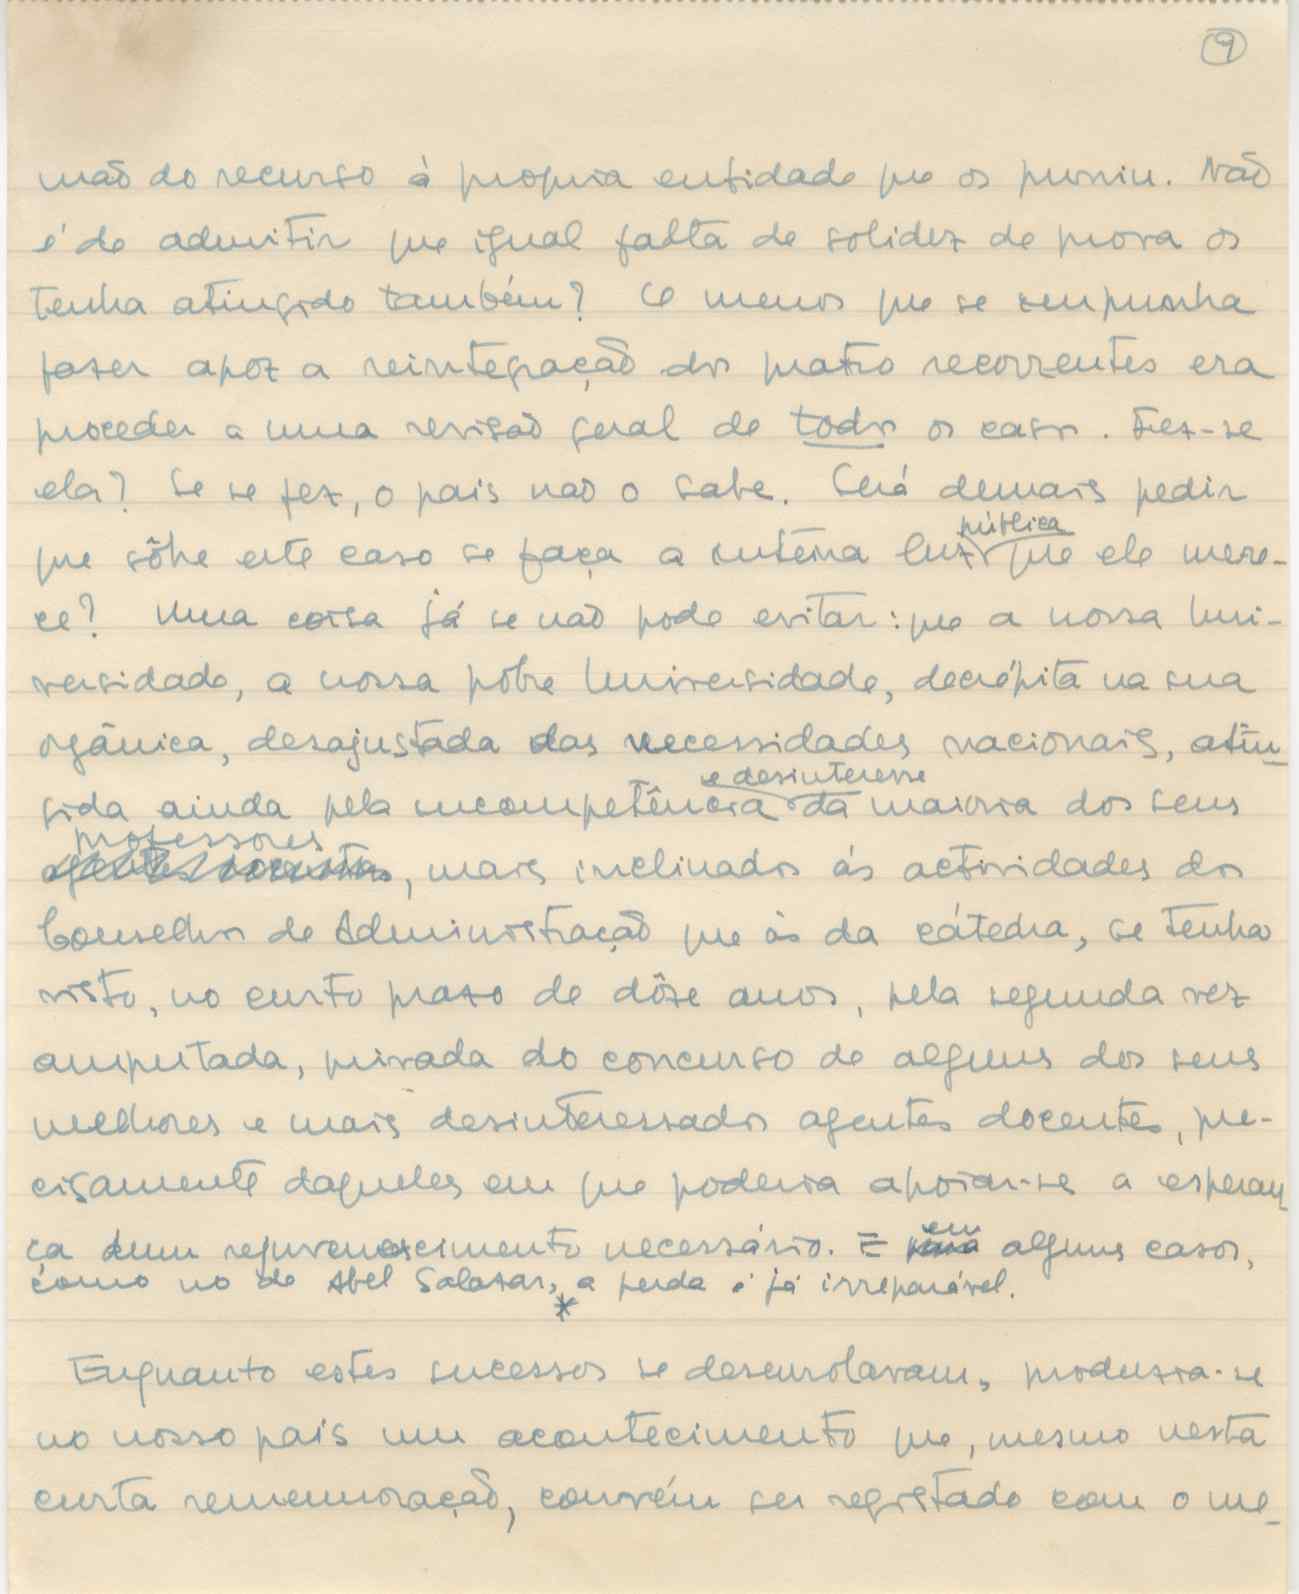 9
mão do recurso à propria entidade que os puniu. Não
é de admitir que igual falta de solidez de prova os
tenha atingido também? O menos que se impunha
fazer apoz a reintegração dos quatro recorrentes era
proceder a uma revisão geral de todos os casos. Fez-se
ela? Se se fez, o pais não o sabe. Será demais pedir
pública
que sôbre este caso se faça a inteira luz que ele mere-
ce? Uma coisa já se não pode evitar: que a nossa Uni-
versidade, a nossa pobre Universidade, decrépita na sua
orgânica, desajustada das necessidades nacionais, atin-
e desinteresse
gida ainda pela incompetência da maioria dos seus
professores
agentes docentes, mais inclinados ás actividades dos
Conselhos de Administração que às da cátedra, se tenha
visto, no curto prazo de dôze anos, pela segunda vez
amputada, privada do concurso de alguns dos seus
melhores e mais desinteressados agentes docentes, pre-
cisamente daqueles em que poderia apoiar-se a esperan-
ça dum rejuvenescimento necessário. E em alguns casos,
como no de Abel Salazar, a perda é já irreparável.
*
Enquanto estes sucessos se desenrolavam, produzia-se
no nosso país um acontecimento que, mesmo nesta
curta rememoração, convém ser registado com o me-